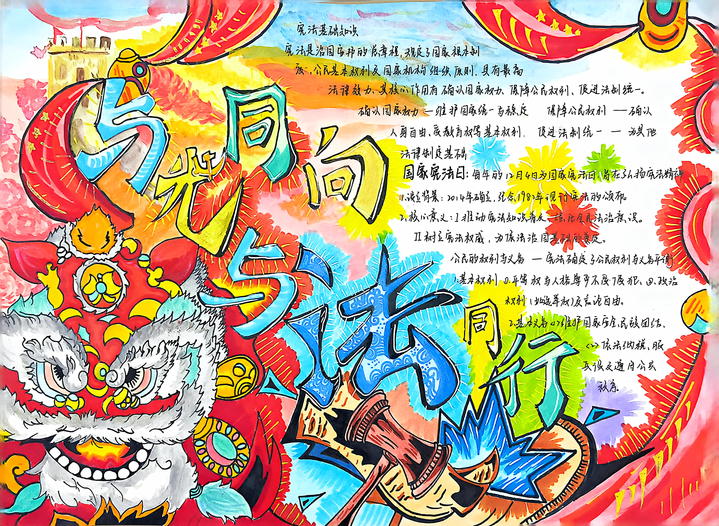 与光同向
与法同行
宪法基础知识
宪法是治国安邦的总章程，规定了国家根本制
度、公民基本权利及国家机构组织原则，具有最高
法律效力、其核心作用有确认国家权力、保障公民权利、促进法制统一。
确认国家权力——维护国家统一与稳定 保障公民权利——确认
人身自由、受教育权等基本权利 促进法制统一——为其他
法律制定基础
国家宪法日：每年的12月4日为国家宪法日，旨在弘扬宪法精神
1.设立背景：2014年确立，纪念1982年现行宪法的颁布
2.核心意义：I推动宪法知识普及，法治意识。
II树立宪法权威，为依法治国基础的
公民的权利与义务——宪法确定了公民权利与义务
1.基本权利 ①平等权与人格尊严不展侵犯、②.政治
权利（如选举权）及言论自由。
2.基本义务 (1)维护国家安全、民族团结、
(2)依法纳税、服
兵役及遵守公共
秩序